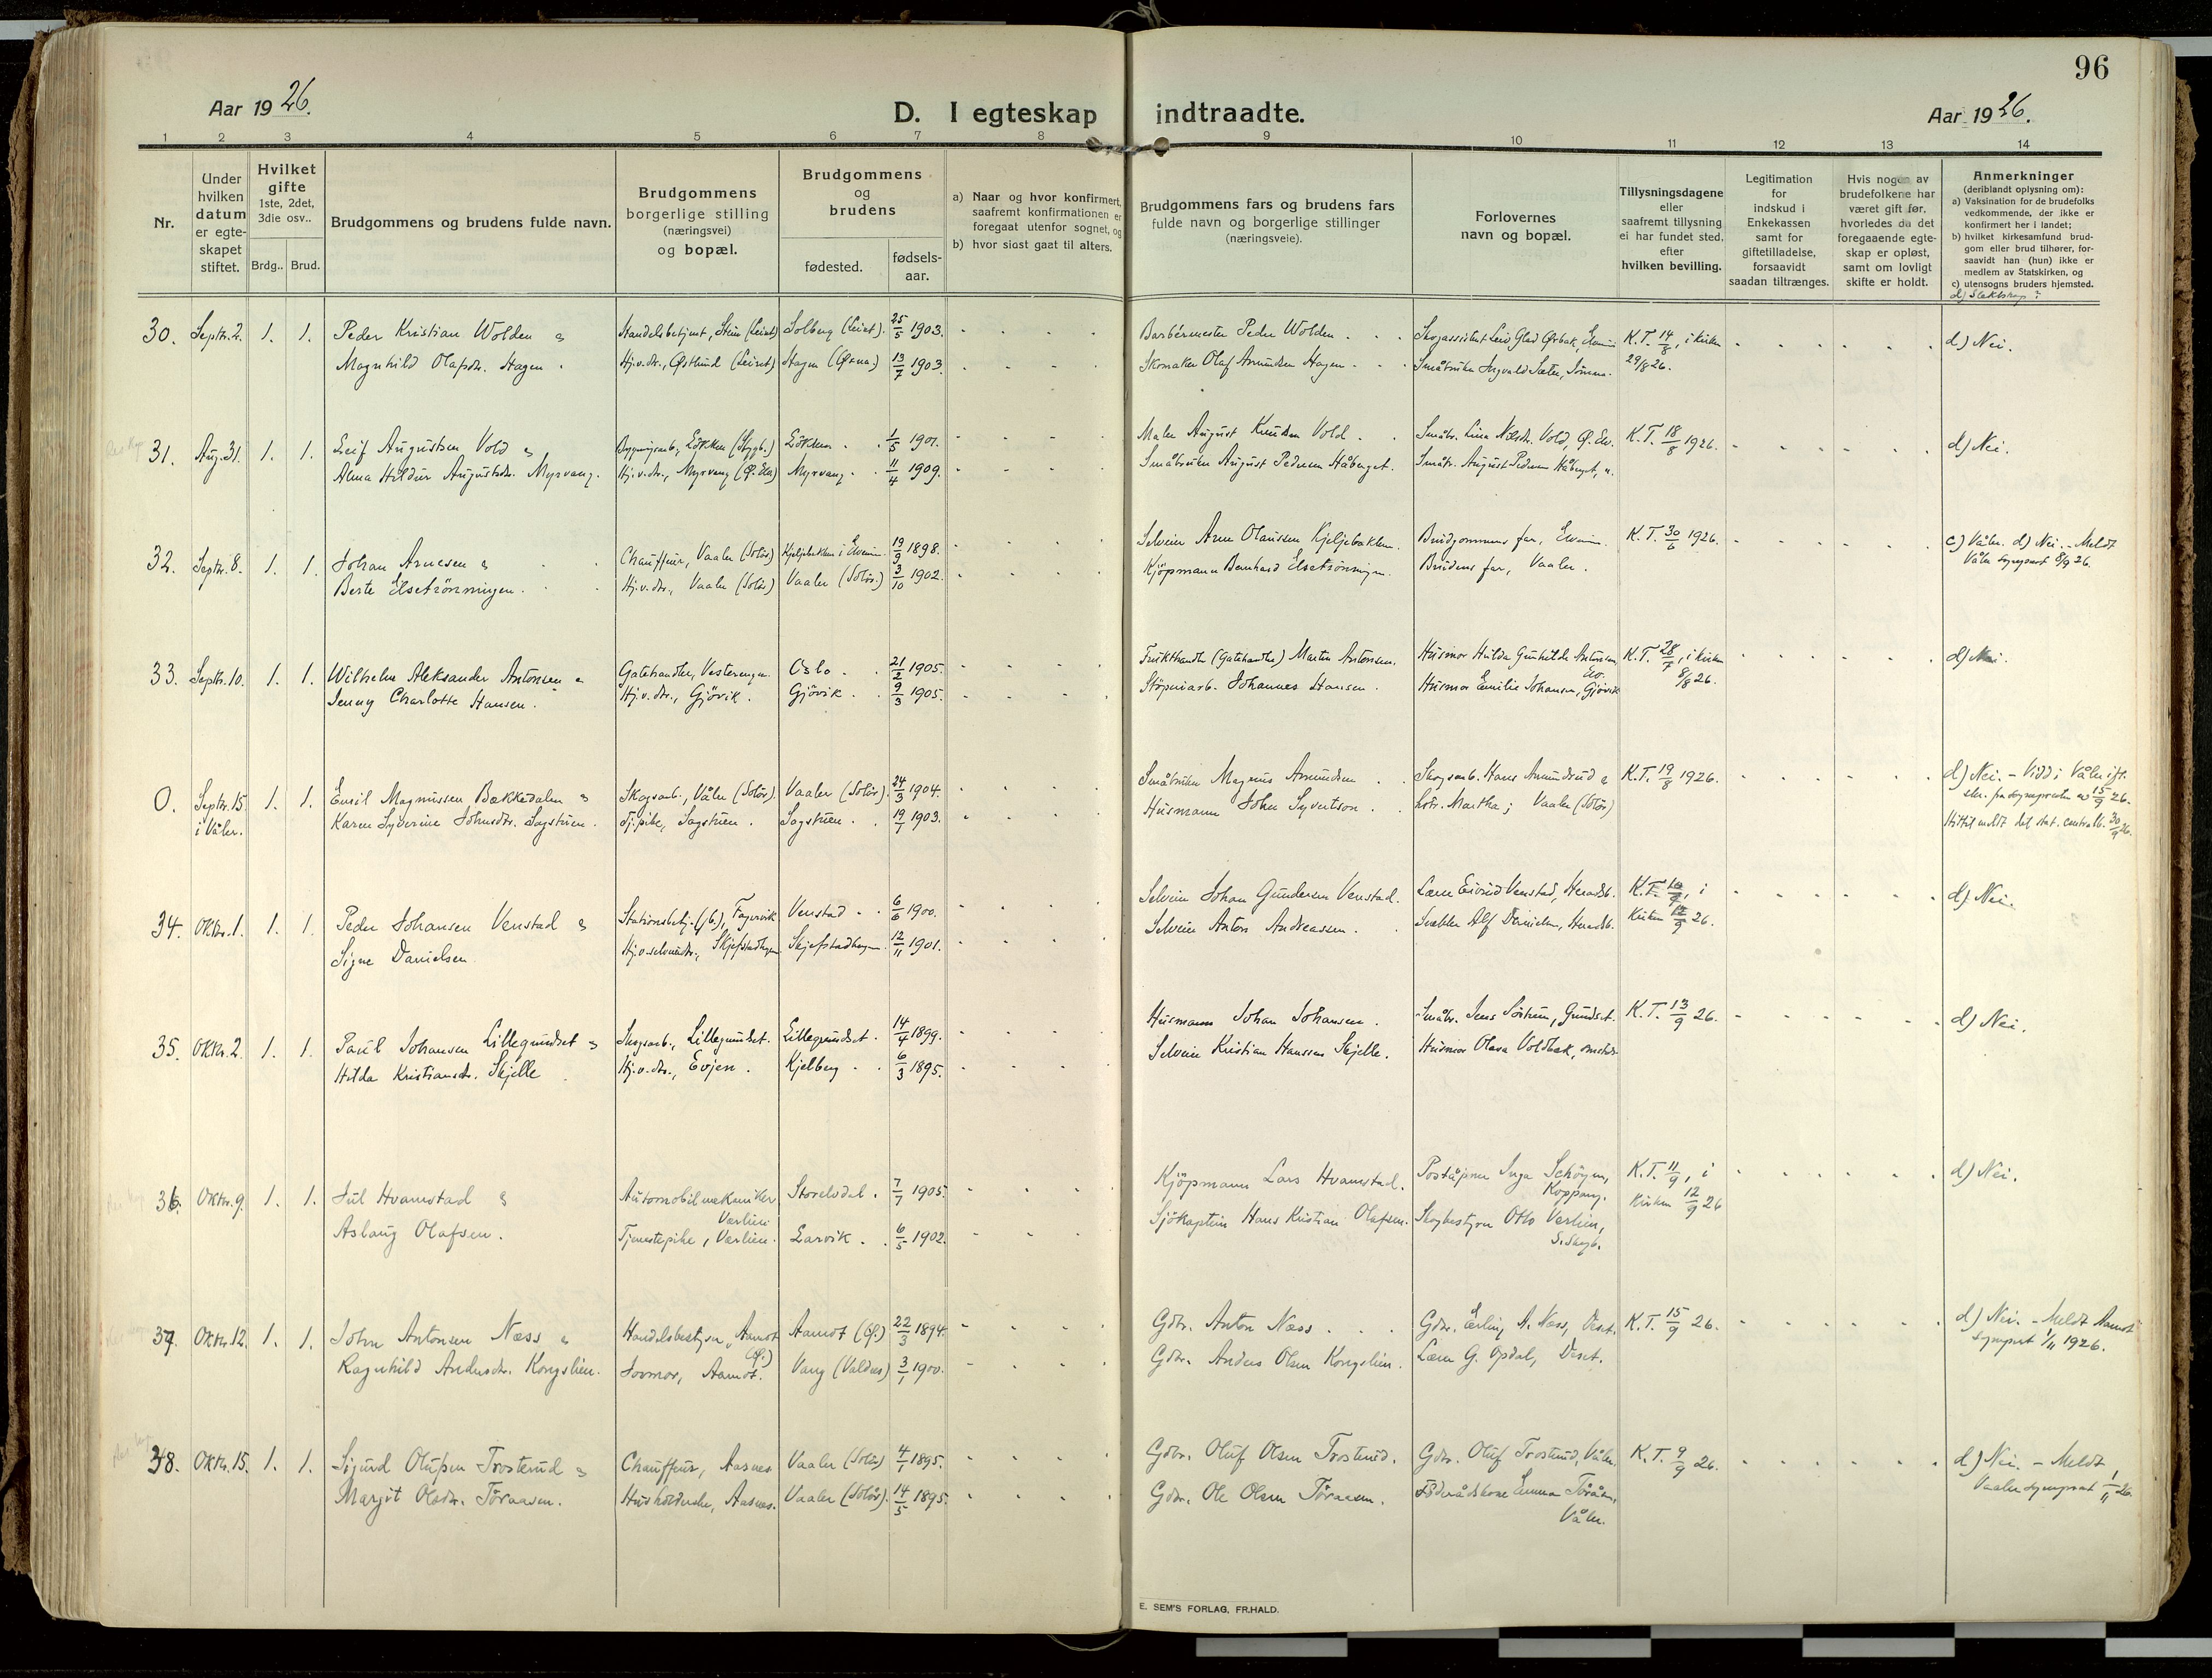 96
Aar 1926.
D. I egteskap indtraadte.
Aar 1926.
1 2 3 4 5 6 7 8 9 10 11 12 13 14
Nr.
Under
hvilken
datum
er egte-
skapet
stiftet.
Hvilket
gifte
1ste, 2det,
3die osv..
Brdg.. Brud.
Brudgommens og brudens fulde navn.
Brudgommens
borgerlige stilling
(næringsvei)
og bopæl.
Brudgommens
og
brudens
fødested.
fødsels-
aar.
a) Naar og hvor konfirmert,
saafremt konfirmationen er
foregaat utenfor sognet, og
b) hvor sidst gaat til alters.
Brudgommens fars og brudens fars
fulde navn og borgerlige stillinger
(næringsveie).
Forlovernes
navn og bopæl.
Tillysningsdagene
eller
saafremt tillysning
ei har fundet sted,
efter
hvilken bevilling.
Legitimation
for
indskud i
Enkekassen
samt for
giftetilladelse,
forsaavidt
saadan tiltrænges.
Hvis nogen av
brudefolkene har
været gift før,
hvorledes da det
foregaaende egte-
skap er opløst,
samt om lovligt
skifte er holdt.
Anmerkninger
(deriblandt oplysning om):
a) Vaksination for de brudefolks
vedkommende, der ikke er
konfirmert her i landet;
b) hvilket kirkesamfund brud-
gom eller brud tilhører, for-
saavidt han (hun) ikke er
medlem av Statskirken, og
c) utensogns bruders hjemsted.
d) Slektskap?
30. Septr. 2. 1. 1. Peder Kristian Wolden & Handelsbetjent, Stein (Leiret) Solberg (Leiret). 25/5 1903. Barbérmester Peder Wolden Skogassistent Leiv Glad Ørbak, K.T. 14/8, i kirken d) Nei.
Magnhild Olafsdr. Hagen. Hj.v.dtr., Østlund (Leiret) Hagen 13/7 1903. Skomaker Olaf Amundsen Hagen Småbruker Ingvald Sæter, 29/8 26.
31. Aug. 31. 1. 1. Leif Augustsen Vold & Løkken 1/5 1901. Maler August Knudsen Vold. Småbr. Lina Nilsdr. Vold, Ø. Elv. K.T. 18/8 1926. d) Nei.
Alma Hildur Augustsdr. Myrvang. Hj.v.dtr., Myrvang (Ø. Elv) Myrvang 11/4 1909. Småbruker August Pedersen Håberget. Småbr. August Pedersen Håberget,
32. Septr. 8. 1. 1. Johan Arnesen & Chauffeur, Vaaler (Solør) Kjeljebakken i Elverum 19/9 1898. Selveier Arne Olaussen Kjeljebakken. Brudgommens far, Elverum. K.T. 30/6 1926. c) Våler. d) Nei. - Meldt
Berte Elsetrønningen. Hj.v.dtr., Vaaler (Solør) Vaaler (Solør.) 3/10 1902. Kjöpmann Bernhard Elsetrønningen. Brudens far, Vaaler. Våler sogneprest 8/9 26.
33. Septr. 10. 1. 1. Wilhelm Aleksander Antonsen & Gatehandler, Vesterengen. Oslo. 21/2 1905. Frukthandler (Gatehandler) Martin Antonsen. Husmor Hulda Gunhilda Antonsen, K.T. 28/7, i kirken d) Nei.
Elv.
Jenny Charlotte Hansen. Hj.v.dtr., Gjövik. Gjövik. 9/3 1905. Støperiarb. Johannes Hansen. Husmor Emilie Johansen, Gjövik 8/8 26.
0. Septr. 15. 1. 1. Emil Magnussen Bækkedalen & Skogsarb., Våler (Solør). Vaaler (Solør). 24/3 1904. Småbruker Magnus Amundsen Skogsarb. Hans Amundsrud & K.T. 19/8 1926. d) Nei. - Viedd i Våler ifl.
i Våler. Karen Syverine Johnsdtr. Sagstuen. Tj.pike, Sagstuen. Sagstuen. 19/7 1903. Husmann John Syvertson. hstr. Martha; Vaaler (Solör) 15/9 26.
Hittil meldt det stat. centralb. 30/9 26.
34. Oktr. 1. 1. 1. Peder Johansen Venstad & Stationsbetj. (jb.), Fagervik. Venstad 6/6 1900. Selveier Johan Gundersen Venstad. Lærer Eivind Venstad, Heradsb. K.T. 10/9, i d) Nei.
Signe Danielsen. Skjefstadhagen. Skjefstadhagen. 12/11 1901. Selveier Anton Andreassen. Snekker Alf Danielsen, Heradsb. Kirken 12/9 26.
35. Oktr. 2. 1. 1. Paul Johansen Lillegrundset & Skogsarb., Lillegrundset. Lillegrundset. 14/4 1899. Husmann Johan Johansen. Småbr. Jens Sörhus, Grundset. K.T. 13/9 26. d) Nei.
Hilda Kristiansdr. Skjelle Hj.v.dtr., Evjen. Kjelberg 6/3 1895. Selveier Kristian Hansen Skjelle. Husmor Olava Voldbak,
36. Oktr. 9. 1. 1. Jul Hvamstad & Automobilmekaniker Storelvdal. 7/7 1905. Kjöpmann Lars Hvamstad. Poståpner Inga Schöyen, K.T. 11/9, i d) Nei.
Værlien. Koppang. Kirken 12/9 26
Aslaug Olafsen. Tjenestepike, Værlien. Larvik. 6/5 1902. Sjökaptein Hans Kristian Olafsen. Skogbestyrer Otto Værlien,
S. Skogb.
37. Oktr. 12. 1. 1. John Antonsen Næss & Handelsbestyrer, Aamot Aamot (Øf.) 22/3 1894. Gdbr. Anton Næss Gdbr. Erling A. Næss, Deset. K.T. 15/9 26. d) Nei. - Meldt Aamot
(Øf.) sogneprt 1/11 1926.
Ragnhild Andersdr. Kongslien. Jormor, Aamot. Vang (Valdres) 3/1 1900. Gdbr. Anders Olsen Kongslien. Lærer G. Opdal, Deset.
38. Oktr. 15. 1. 1. Sigurd Olufsen Trosterud & Chauffeur, Aasnes Vaaler (Solør) 4/1 1895. Gdbr. Oluf Olsen Trosterud. Gdbr. Oluf Trosterud, Våler. K.T. 9/9 26. d) Nei. - Meldt
Margit Olsdr. Töraasen. Husholderske, Aasnes. Vaaler (Solør). 14/5 1895. Gdbr. Ole Olsen Töraasen. Föderådskone Emma Töråsen, Vaaler sogneprest 1/11 26.
Våler.
E. SEM'S FORLAG, FR.HALD.